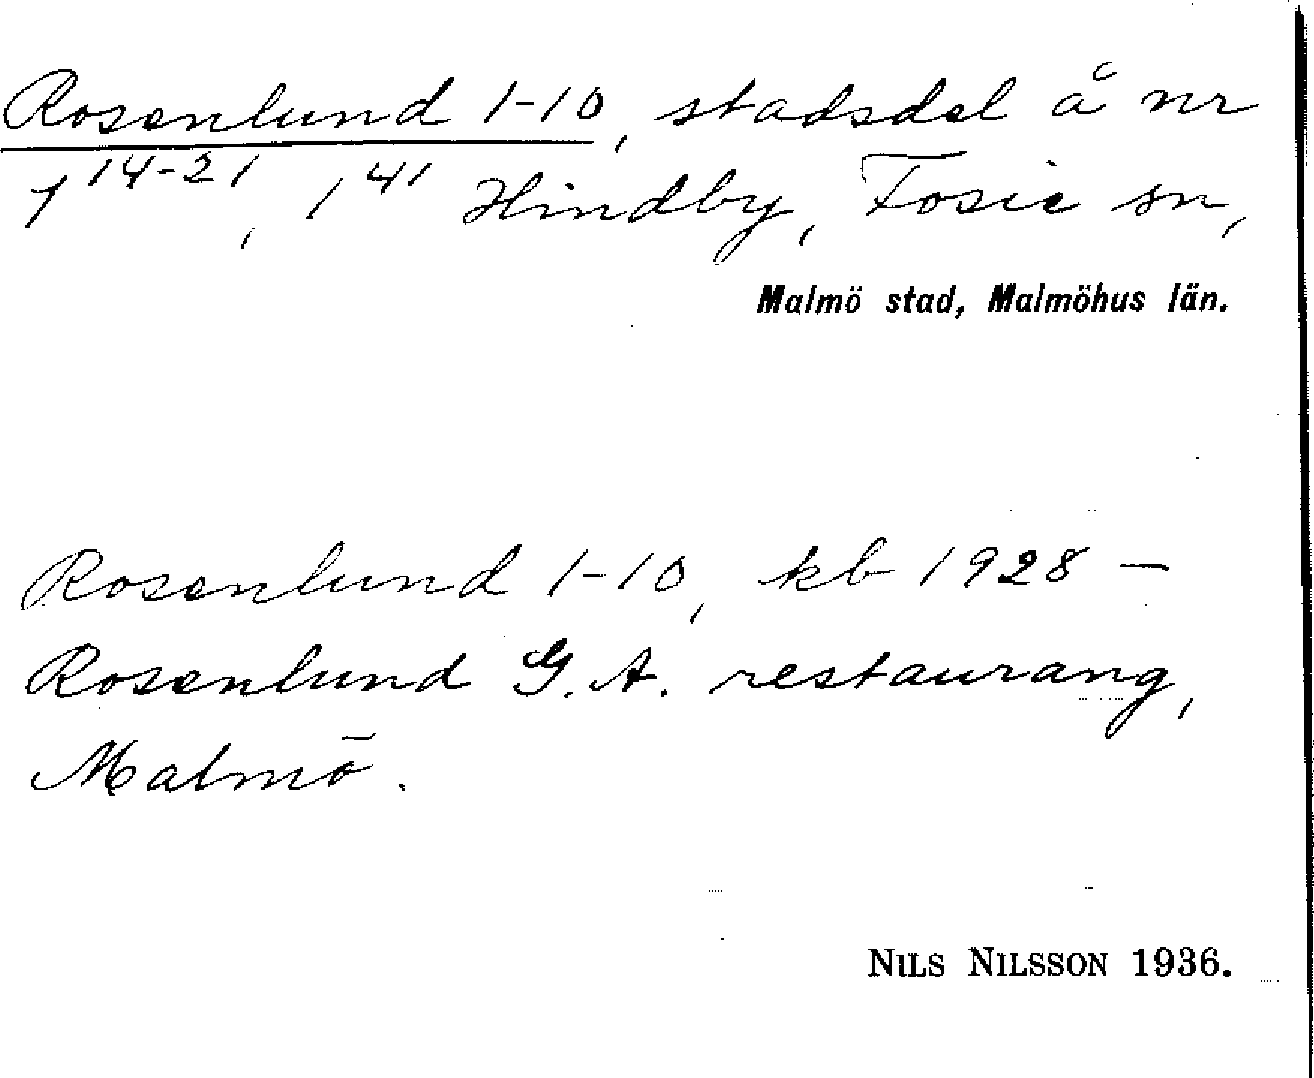 Rosenlund 1-10, stadsdel å nr
1¹⁴⁻²¹, 1⁴¹ Hindby, Fosie sn,
Malmö stad, Malmöhus län.
Rosenlund 1-10, kb 1928 –
Rosenlund G. A. restaurang,
Malmö.
NILS NILSSON 1936.